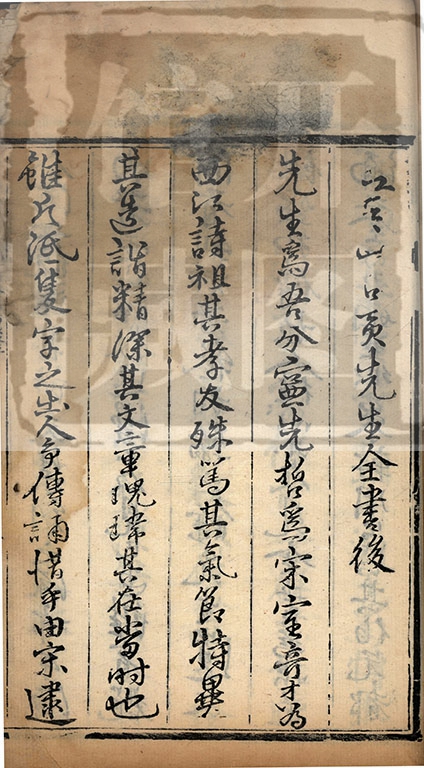 山谷黃先生全書後
先生為吾分寗先哲為宋室奇才為
西江詩祖其孝友殊篤其氣節特異
其道詣精深其文章瑰瑋其在當时也
雖片紙隻字之出人爭傳誦惜乎由宋逮